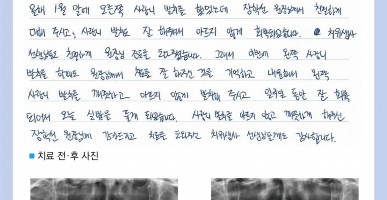 올해 1월 말에 오른쪽 사랑니 발치를 했었는데 장현선 원장님께서 친절하게
대해 주시고, 사랑니 발치도 잘 해주셔서 아프지 않게 회복되었습니다. 치위생사
선생님들도 친절하게 원장님 진료를 도와주셨습니다. 그래서 이번에 왼쪽 사랑니
발치를 할때도 원장님께서 잘 해주신 것을 기억하고 내원해서 왼쪽
사랑니 발치를 깨끗하고 아프지 않게 발치해 주시고 일주일 동안 잘 회복
되어서 오늘 실밥을 풀게 되었습니다. 사랑니 발치를 아프지 않고 깨끗하게 해주신
장현선 원장님께 감사드리고 치료를 도와주신 치위생사 선생님들께도 감사합니다.
■ 치료 전·후 사진